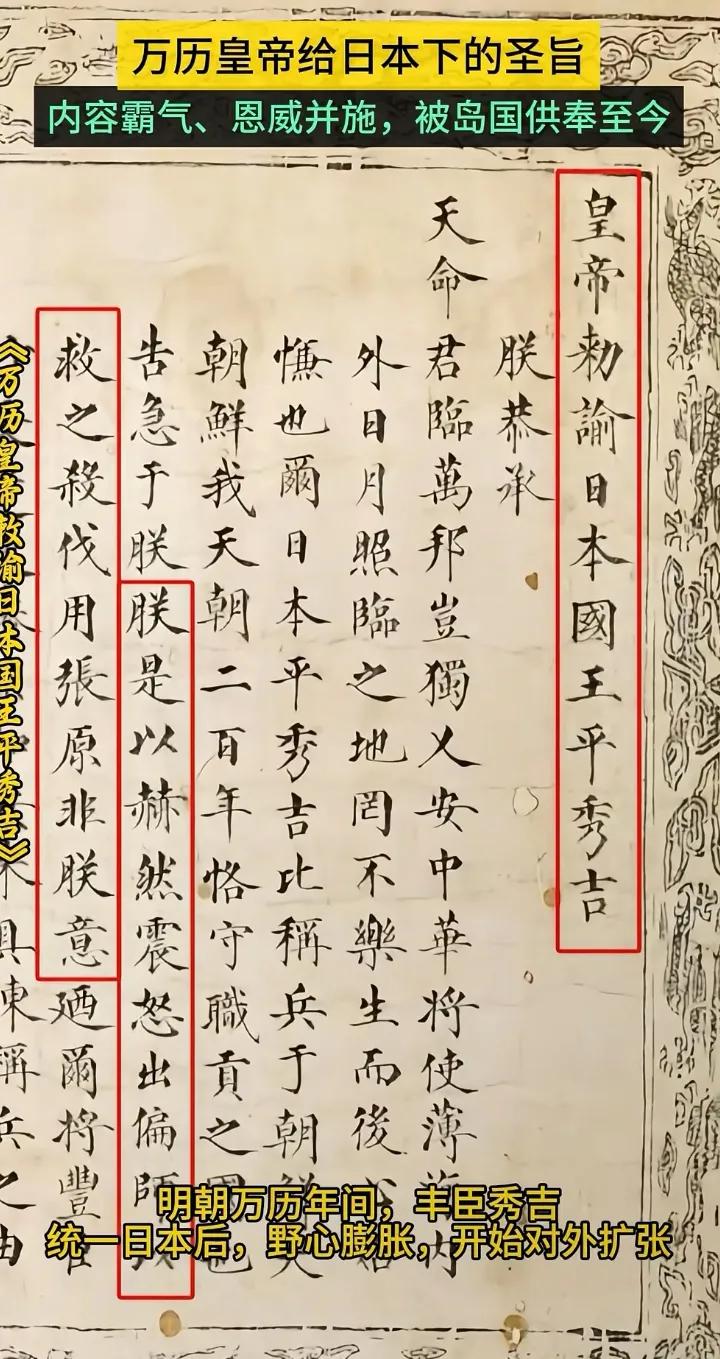 万历皇帝给日本下的圣旨
内容霸气、恩威并施，被岛国供奉至今
皇帝勑諭日本國王平秀吉
朕恭承
天命君臨萬邦豈獨乂安中華將使薄海內
外日月照臨之地罔不樂生而後
慊也爾日本平秀吉比稱兵于朝鮮夫
朝鮮我天朝二百年恪守職貢之國也
告急于朕朕是以赫然震怒出偏師以
救之殺伐用張原非朕意廼爾將豐臣
東稱兵之由
《万历皇帝敕渝日本国王平秀吉》
明朝万历年间，丰臣秀吉
统一日本后，野心膨胀，开始对外扩张